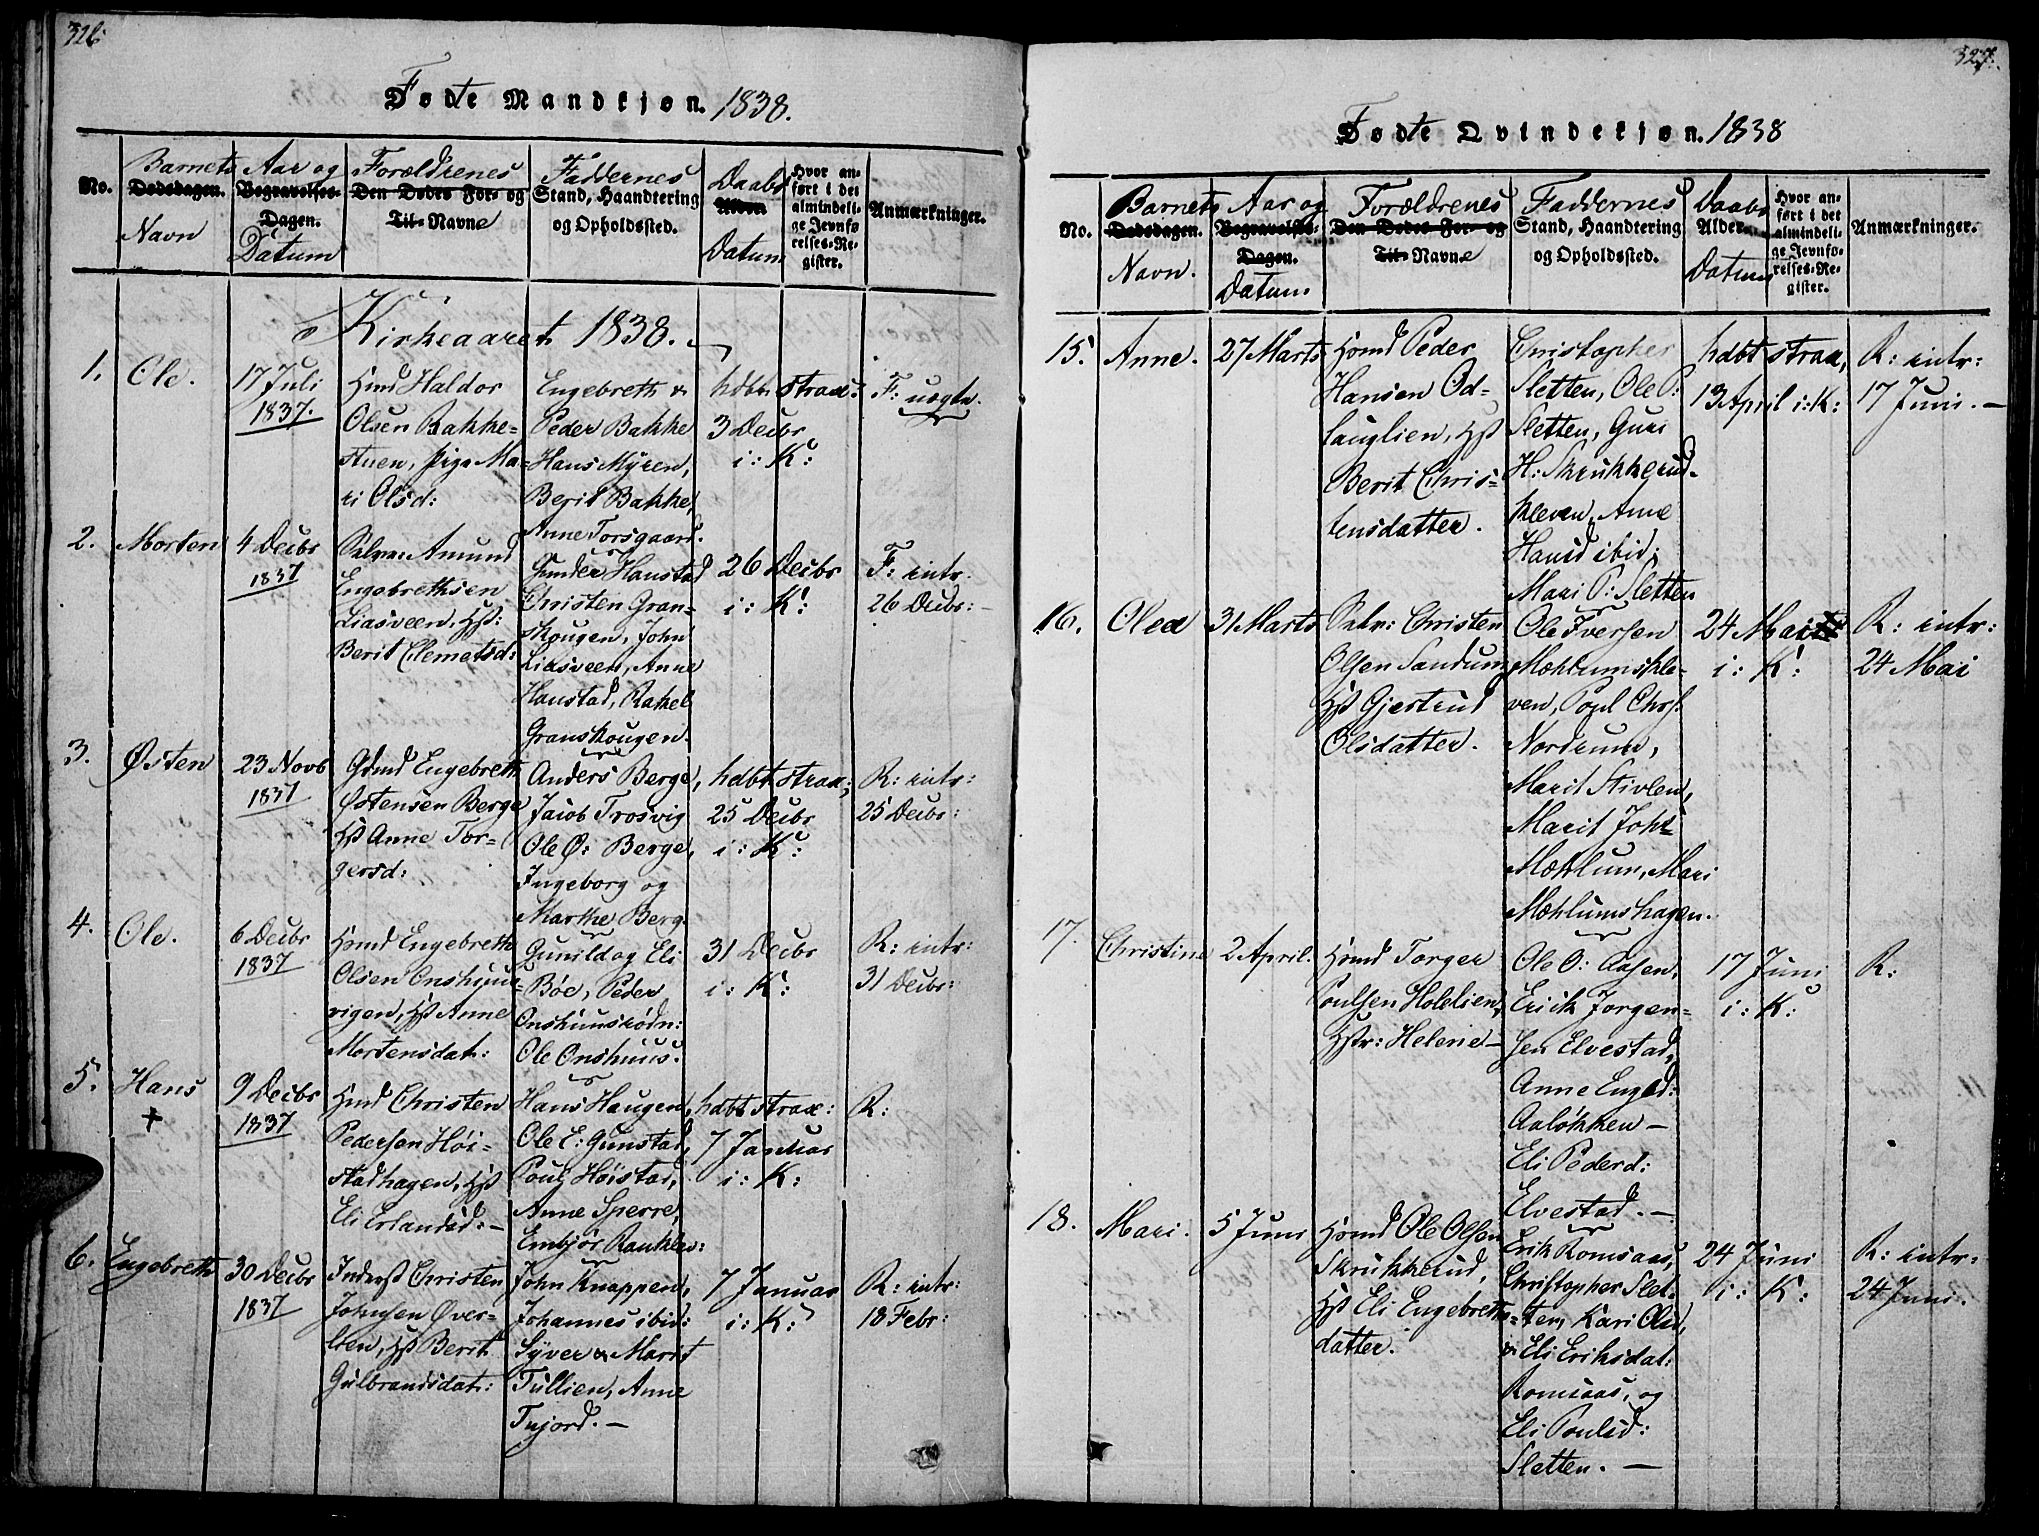 326.
Fødte Mandkjøn. 1838.
No.
Barnets
Dødsdagen.
Navn
Aar og
Begravelses-
Dagen.
Datum
Forældrenes
Den Dødes For- og
Til-Navne
Faddernes
Stand, Haandtering
og Opholdssted.
Daabs
Alder.
Datum
Hvor an-
ført i det
almindeli-
ge Jevnfø
relses-Re-
gister.
Anmærkninger.
Kirkeaaret 1838.
1.
Ole.
17 Juli
1837.
Hmd Haldor
Olsen Bakke-
stuen, Pige Ma-
ri Olsd:
Engebreth &
Peder Bakke
Hans Myren,
Berit Bakke,
Anne Torsgaard.
hdbt strax:
3 Decbr
i: K:
F: uægte.
2.
Morten
4 Decbr
1837
Amund
Engebrethsen
Liasveen, Hst:
Berit Clemetsd:
Gunder Hanstad
Christen Gran-
skougen, John
Liasveen, Anne
Hanstad, Rakel
Granskougen.
26 Decbr
i: K:
F: intr.
26 Decbr: –
3.
Østen
23 Novb
1837
Gdmd Engebreth
Østensen Berge
Hst Anne Tor-
gersd:
Anders Berge,
Jacob Trosvig
Ole Ø: Berge,
Ingeborg og
Marthe Berg.
hdbt strax;
25 Decbr
i: K:
R: intr:
25 Decbr:
4.
Ole.
6 Decbr
1837
Hsmd Engebreth
Olsen Onshuus-
vigen, Hst Anne
Mortensdat:
Gunild og Eli
Bøe, Peder
Onshuusrødn:
Ole Onshuus.
31 Decbr
i: K:
R: intr:
31 Decbr:
5.
Hans
+
9 Decbr
1837
Hmd Christen
Pedersen Høi-
stadhagen, Hst
Eli Erlandsd: –
Hans Haugen,
Ole E: Gunstad,
Poul Høistad,
Anne Sperre,
Embjør Rauklev:
hdbt strax:
7 Januar
i: K:
R:
6.
Engebreth
30 Decbr
1837
Inderst Christen
Johnsen Øver-
lien, Hst Berit
Gulbrandsdat:
John Knappen,
Johannes ibid:
Syver & Marit
Tullien, Anne
Tujord. –
7 Januar
i: K:
R: intr:
18 Febr:
327.
Fødte Qvindekjøn. 1838
No.
Barnets
Dødsdagen.
Navn.
Aar og
Begravelses-
Dagen.
Datum
Forældrenes
Den Dødes For- og
Til-Navne
Faddernes
Stand, Haandtering
og Opholdssted.
Daabs
Alder.
Datum
Hvor an-
ført i det
almindeli-
ge Jevnfø-
relses-Re-
gister.
Anmærkninger.
15.
Anne.
27 Marts
Hsmd Peder
Hansen Od-
lauglien, Hst
Berit Chris-
tensdatter.
Christopher
Sletten, Ole P:
Sletten, Guri
H: Skrukkerud-
kleven, Anne
Hansd ibid;
Mari P: Sletten
hdbt strax,
13 April i: K:
R: intr:
17 Juni. –
16.
Olea
31 Marts
Selv: Christen
Olsen Sandum,
Hst Gjertrud
Olsdatter.
Ole Iversen
Mæhlumskle-
ven, Poul Chrst:
Nordrum,
Marit Stivlen,
Marit Joh:
Mæhlum, Mari
Mæhlumshagen.
24 Mai
i: K:
R: intr:
24 Mai
17.
Christine
2 April.
Hsmd Torger
Poulsen Holelien,
Hstr: Helene –
Ole O: Aasen,
Erick Jorgen-
sen Elvestad,
Anne Engebd:
Aaløkken –
Eli Pederd:
Elvestad. –
17 Juni
i: K:
R:
18.
Mari.
5 Juni
Hsmd Ole Olsen
Skrukkerud,
Hst Eli Engebreths-
datter.
Erik Romsaas,
Christopher Slet-
ten, Kari Olsd,
& Eli Eriksdat:
Romsaas, og
Eli Poulsd:
Sletten. –
24 Juni
i: K:
R: intr:
24 Juni.